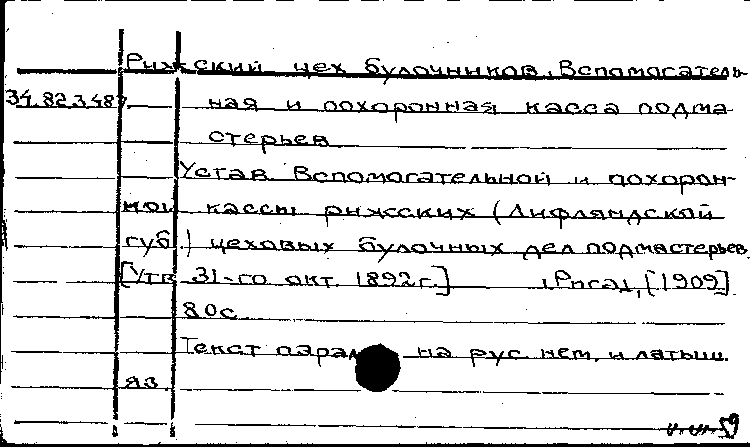 Рижский цех булочников. Вспомогатель-
34.82.3487 ная и похоронная касса подма
стерьев
Устав Вспомогательной и похорон-
ной кассы рижских (Лифляндской
губ.) цеховых булочных дел подмастерьев
[Утв 31-го окт. 1892г.] [Рига], [1909]
80с
Текст парал на рус. нем. и латыш.
яз.
59